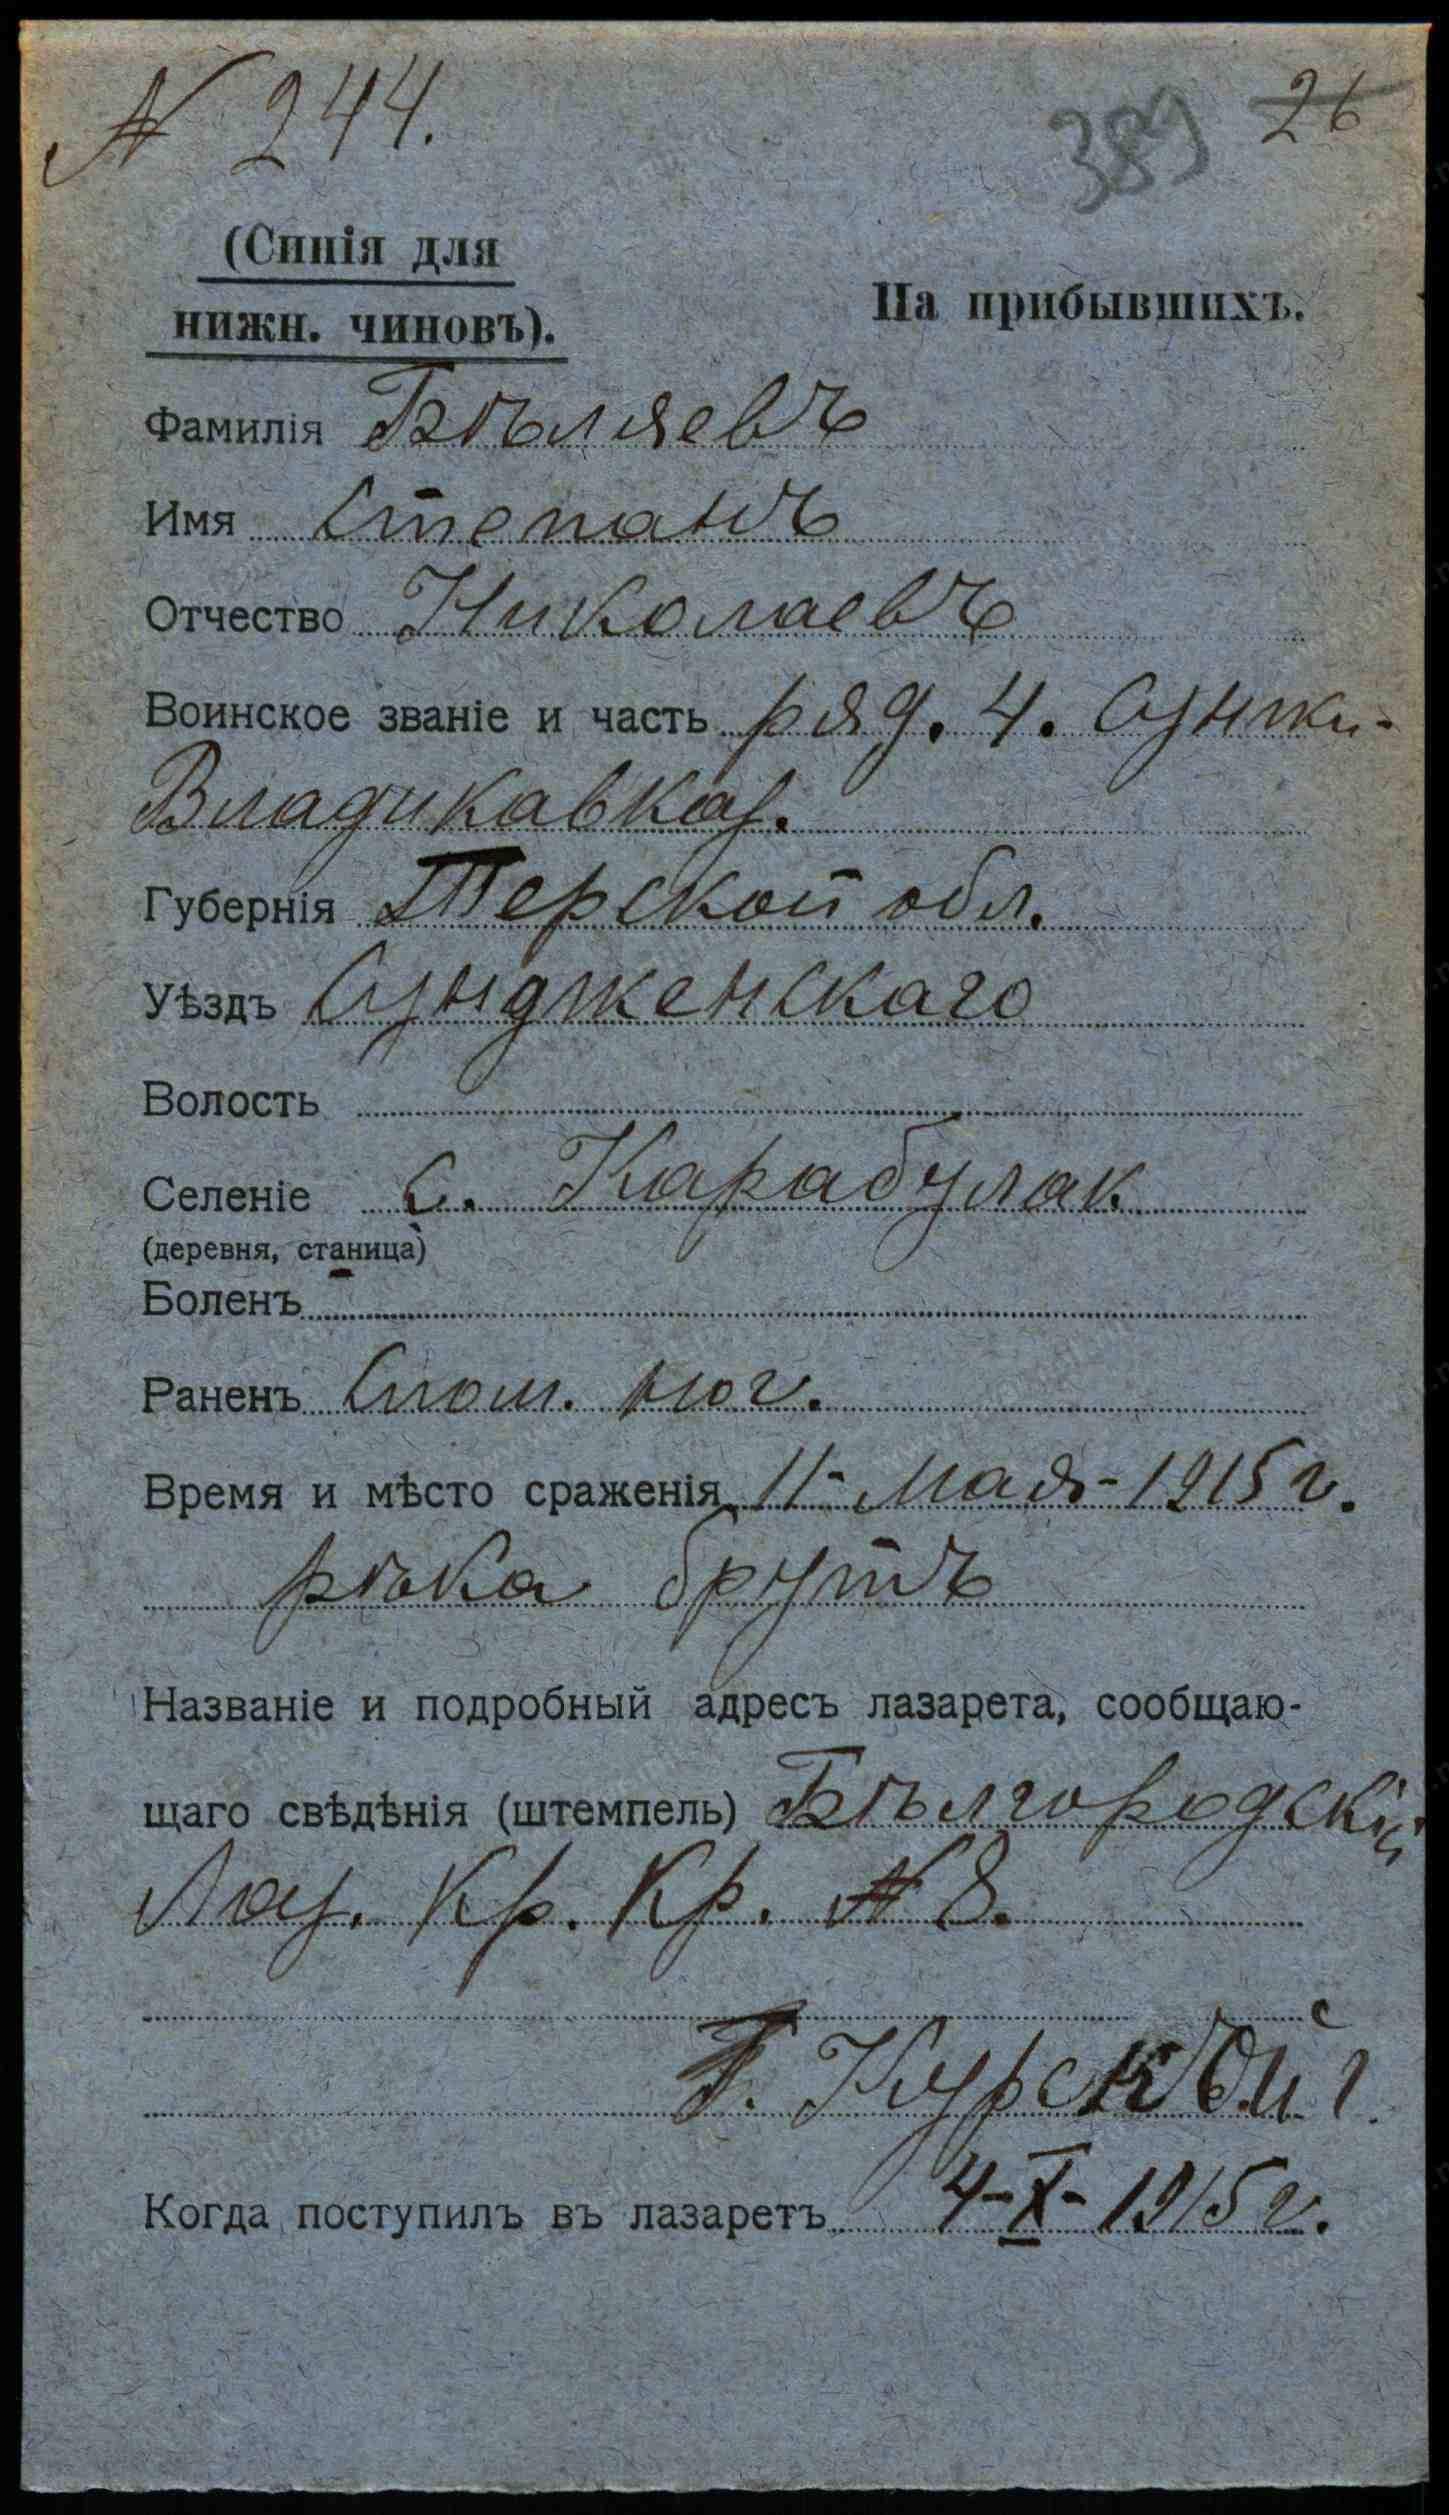 № 244.
389 26
(Синія для
нижн. чиновъ).
На прибывшихъ.
Фамилія Бѣляевъ
Имя Степанъ
Отчество Николаевъ
Воинское званіе и часть ряд. 4. Сунжи-
Владикавказ.
Губернія Терской обл.
Уѣздъ Сундженскаго
Волость
Селеніе с. Карабулак
(деревня, станица)
Боленъ
Раненъ ног.
Время и мѣсто сраженія 11- Мая-1915 г.
рѣка брутъ
Названіе и подробный адресъ лазарета, сообщаю-
щаго свѣдѣнія (штемпель) Бѣлгородскій
Лаз. Кр. Кр. № 8.
Курской г.
Когда поступилъ въ лазаретъ 4-X-1915 г.